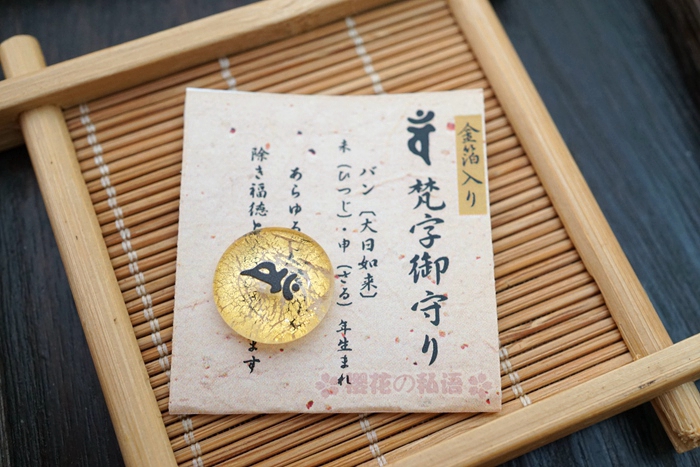 金箔入り
梵字御守り
バン〔大日如来〕
未〔ひつじ〕・申〔さる〕年生まれ
あらゆる
除き福徳と
ます
櫻花の私语